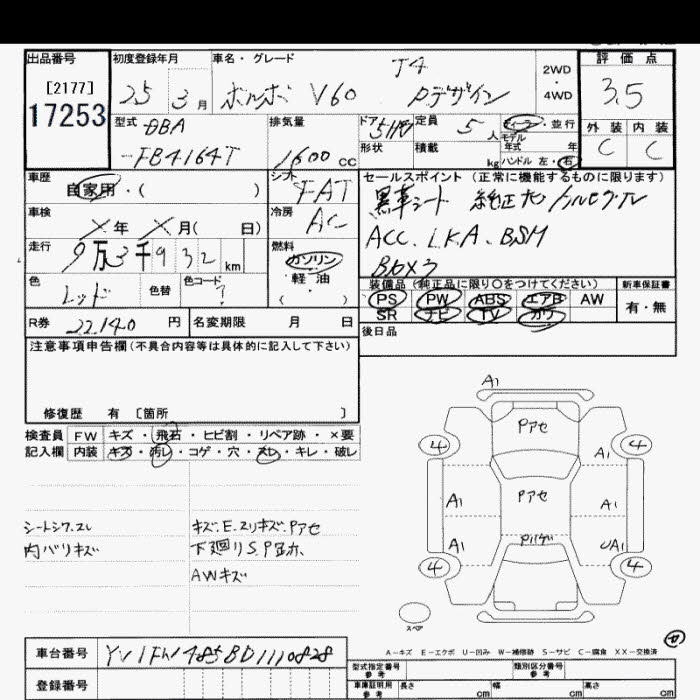 出品番号 初度登録年月 車名・グレード 評価点
[2177]
17253
25 3月 ボルボ V60 T4 Rデザイン
2WD
4WD
3.5
外装 内装
C C
型式 DBA
-FB4164T
排気量
1600 cc
ドア 5HB
定員 5人
ディーラー・並行
モデル年式 年
形状 積載 kg
ハンドル 左・右
車歴
自家用・( )
シフト
FAT
セールスポイント(正常に機能するものに限ります)
黒革シート 純正ナビ フルセグTV
ACC. LKA. BSM
車検
×年 ×月( 日)
冷房
AC
走行
9万3千932km
燃料
ガソリン
軽油
( )
色
レッド
色替
色コード
?
装備品(純正品に限り○をつけてください)
新車保証書
PS PW ABS エアB AW
SR ナビ TV カワ
有・無
R券 22,140円
名変期限 月 日
後日品
注意事項申告欄(不具合内容等は具体的に記入して下さい)
修復歴 有〔箇所 〕
検査員 FW キズ・飛石・ヒビ割・リペア跡・×要
記入欄 内装 キズ・汚レ・コゲ・穴・スレ・キレ・破レ
シートシワ.スレ
内バリキズ
キズ.E.スリキズ.Pアセ
下廻りS.P
AWキズ
A1
Pアセ
4 4
A1
Pアセ
A1 A1
A1 UA1
Pハゲ
4 4
スペア
A-キズ E-エクボ U-凹み W-補修跡 S-サビ C-腐食 XX-交換済
車台番号 YV1FW485BD1110828
登録番号
型式指定番号 参考
類別区分番号 参考
車庫証明用 参考 長さ cm 幅 cm 高さ cm